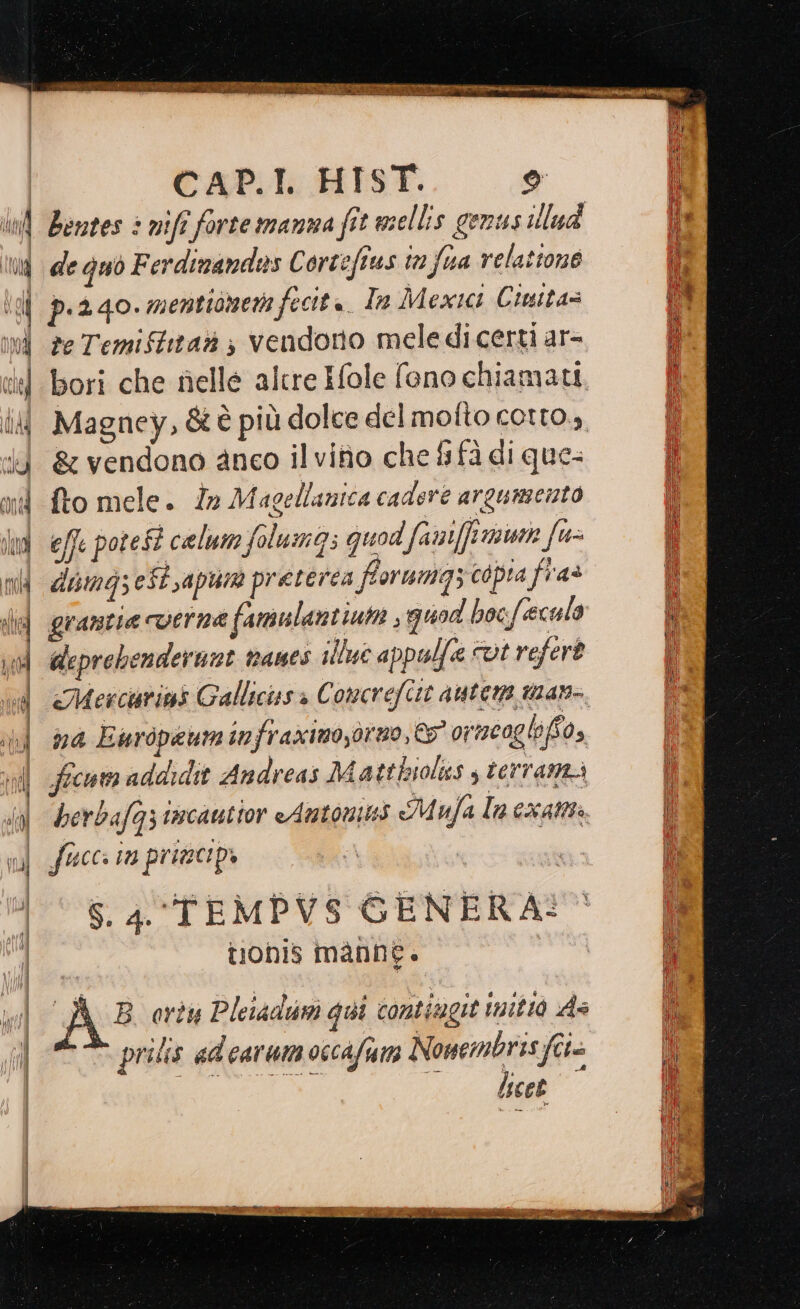 CAP. I. HIST. 9
bentes : nisi forte manna sit mellis genus illud
de quo Ferdinandus Cortesius in sua relatione
p.240. mentionem fecit. In Mexici Ciuita-
te Temistitan, vendono mele di certi ar-
bori che nelle altre Isole sono chiamati
Magney, & è più dolce del mosto cotto,
& vendono anco il vino che si fà di que-
sto mele. In Magellanica cadere argumento
esse potest cælum solumq; quod sanissimum su-
dumq; est, apum præterea florumq; copia fra-
grantiæ vernæ famulantium, quod hoc sæculo
deprehenderunt naues illuc appulsæ vt refert
Mercurius Gallicus. Concrescit autem man-
na Europæum in fraxino, orno, & orneoglosso,
ficum addidit Andreas Matthiolus, terram
herbasq; incautior Antonius Musa In exam.
succ. in princip.
§. 4. TEMPVS GENERA-
tionis manne.
AB ortu Pleiadum qui contingit initio A-
prilis ad earum occasum Nouembris sci-
licet